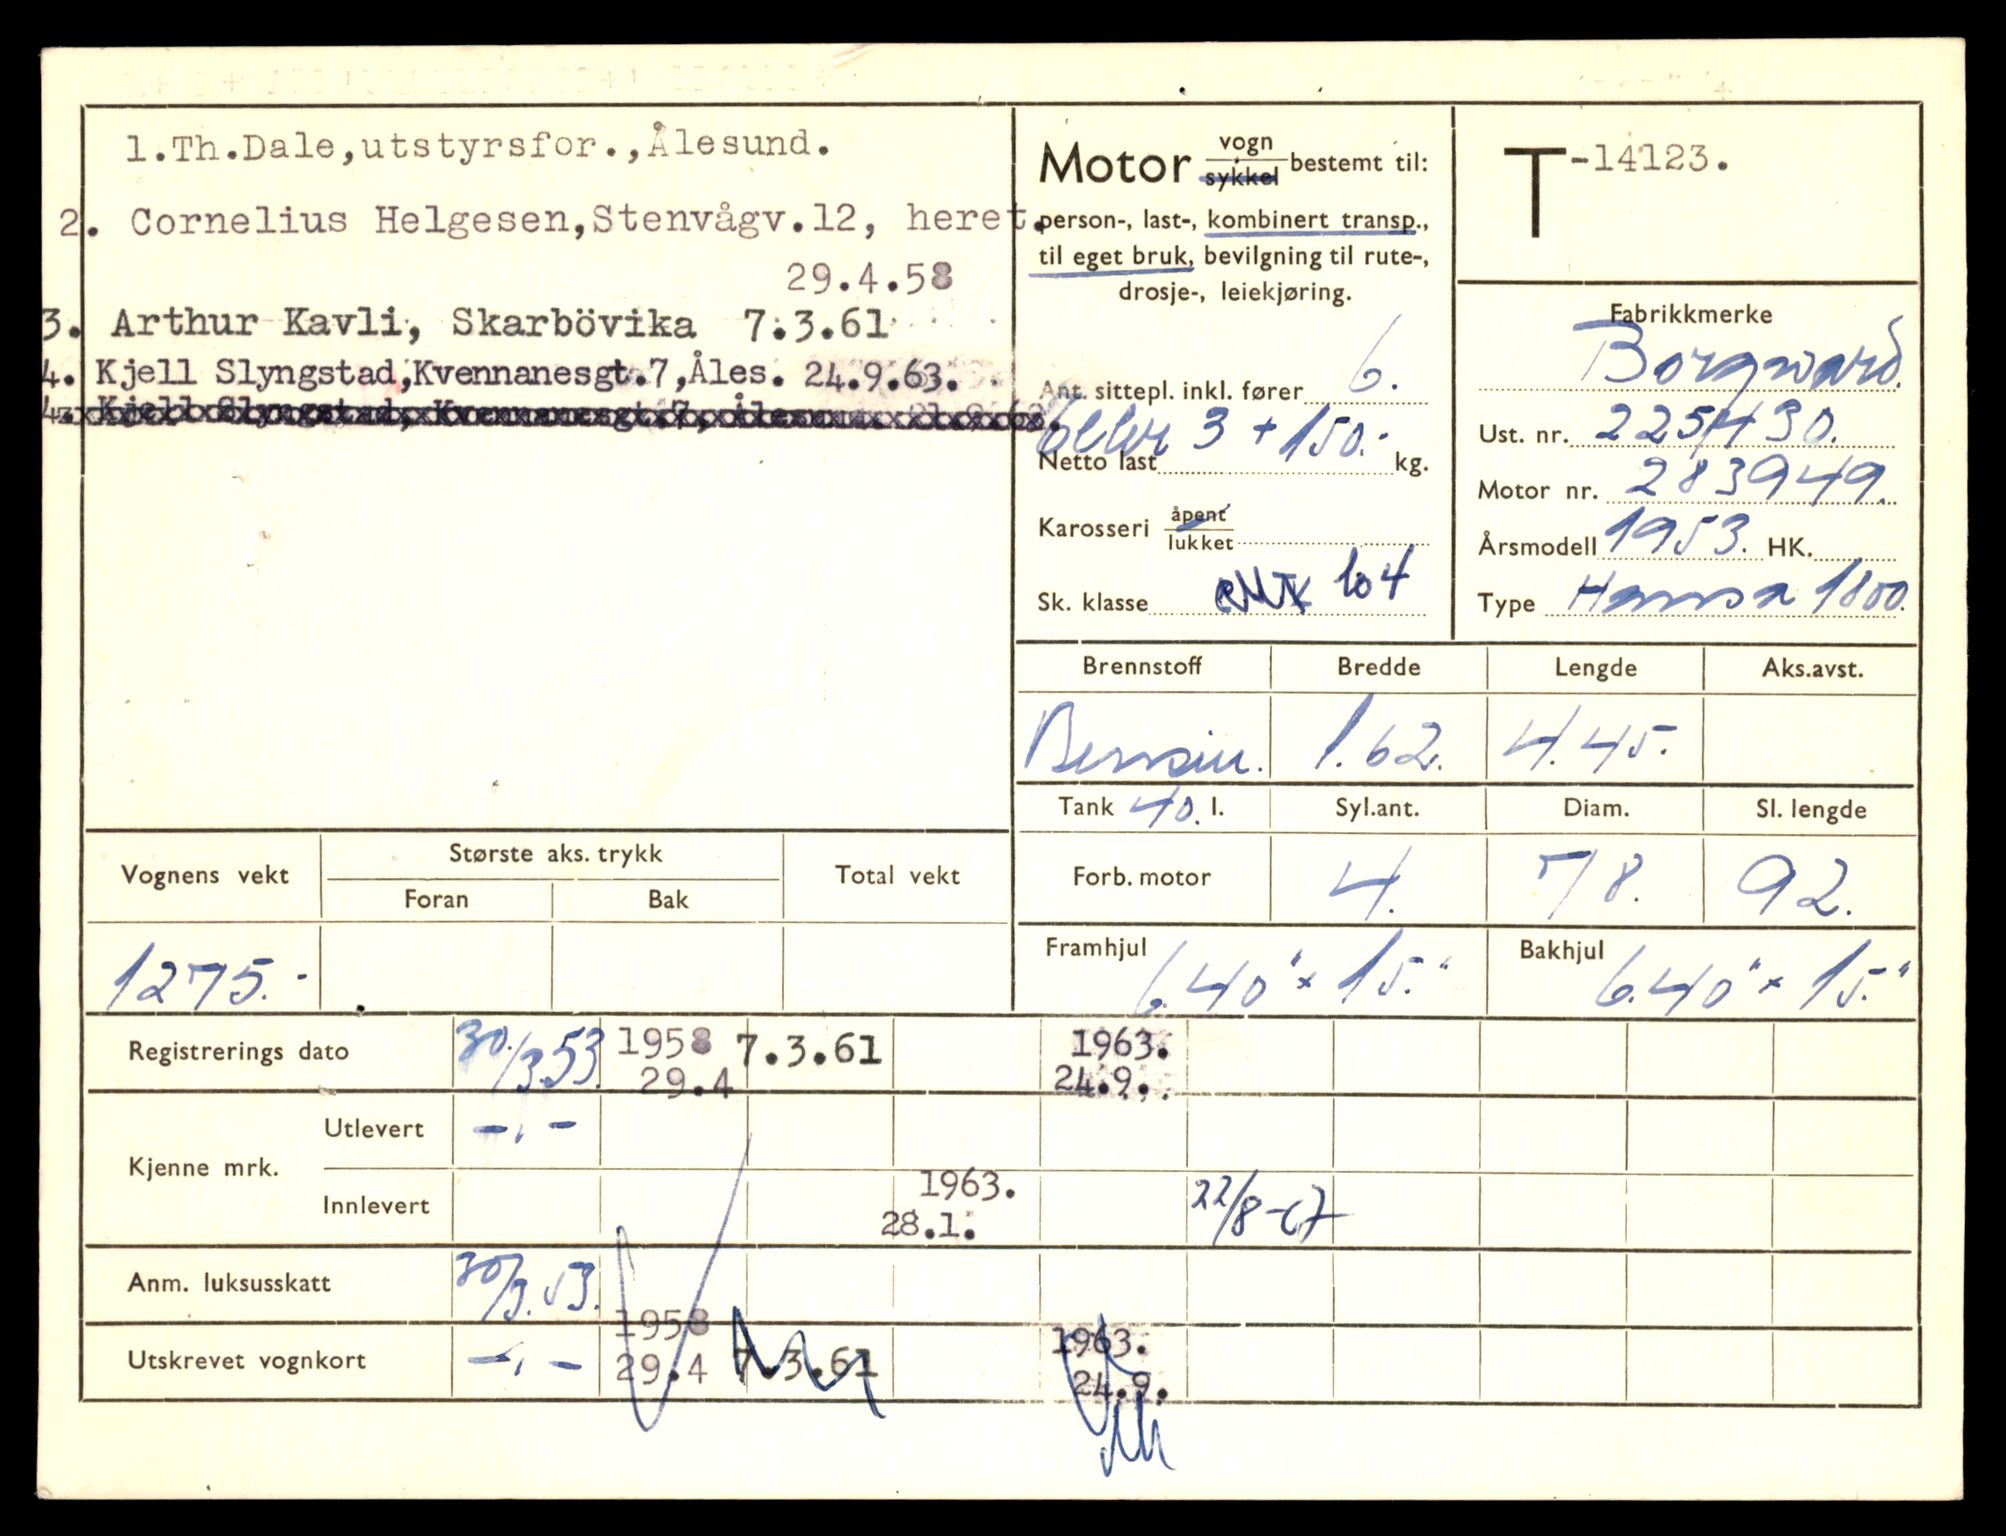 1.Th.Dale,utstyrsfor.,Ålesund.
2. Cornelius Helgesen,Stenvågv.12, heret.
29.4.58
3. Arthur Kavli, Skarbövika 7.3.61
4. Kjell Slyngstad,Kvennanesgt.7,Åles. 24.9.63.
4. Kjell Slyngstad, Kvennanesgt.7, Ålesund.
Motor vogn
sykkel bestemt til:
person-, last-, kombinert transp.,
til eget bruk, bevilgning til rute-,
drosje-, leiekjøring.
Ant. sittepl. inkl. fører 6.
eller 3 + 150.-
Netto last kg.
Karosseri åpent
lukket
Sk. klasse 104
T-14123.
Fabrikkmerke
Borgward.
Ust. nr. 225430.
Motor nr. 283949.
Årsmodell 1953. HK.
Type Hansa 1800.
Brennstoff Bredde Lengde Aks.avst.
Bensin. 1.62. 4.45.
Tank 40. l. Syl.ant. Diam. Sl. lengde
Forb. motor 4. 78. 92.
Framhjul 6.40" x 15." Bakhjul 6.40" x 15."
Vognens vekt Største aks. trykk Total vekt
Foran Bak
1275.-
Registrerings dato 30./3.53. 1958 7.3.61 1963.
29.4 24.9.
Kjenne mrk. Utlevert -"-
Innlevert 1963. 22/8-67
28.1.
Anm. luksusskatt 30/3.53.
1958 1963.
Utskrevet vognkort -"- 29.4 7.3.61 24.9.